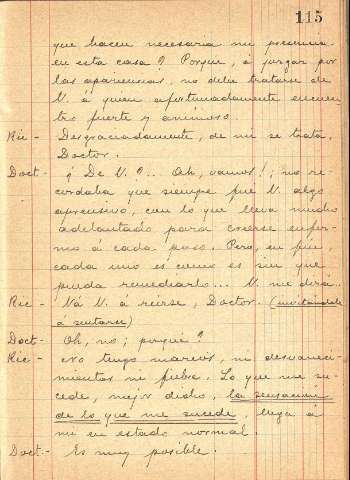 115
que hacen necesaria mi presencia
en esta casa? Porque, á juzgar por
las apariencias, no debe tratarse de
V. á quien afortunadamente encuen
tro fuerte y animoso.
Ric - Desgraciadamente, de mi se trata,
Doctor.
Doct - ¿De V.?... Ah, vamos!; no re-
cordaba que siempre fué V. algo
aprensivo, con lo que lleva mucho
adelantado para creerse enfer-
mo á cada paso. Pero, en fin,
cada uno es como es sin que
pueda remediarlo... V. me dirá.
Ric - Vá V. á reirse, Doctor. (invitandole
á sentarse)
Doct - Oh, no; porqué?
Ric - No tengo mareos, ni desvaneci-
mientos ni fiebre. Lo que me su-
cede, mejor dicho, la sensación
de lo que me sucede, llega á
mi en estado normal.
Doct - Es muy posible.